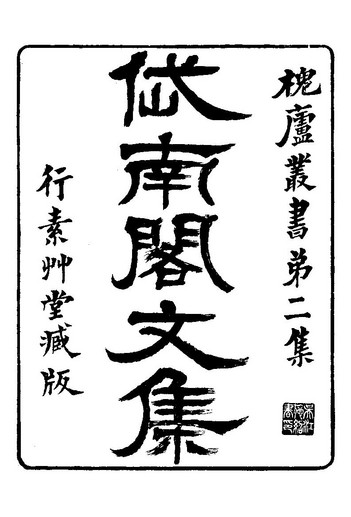 槐廬叢書第二集
岱南閣文集
行素艸堂臧版